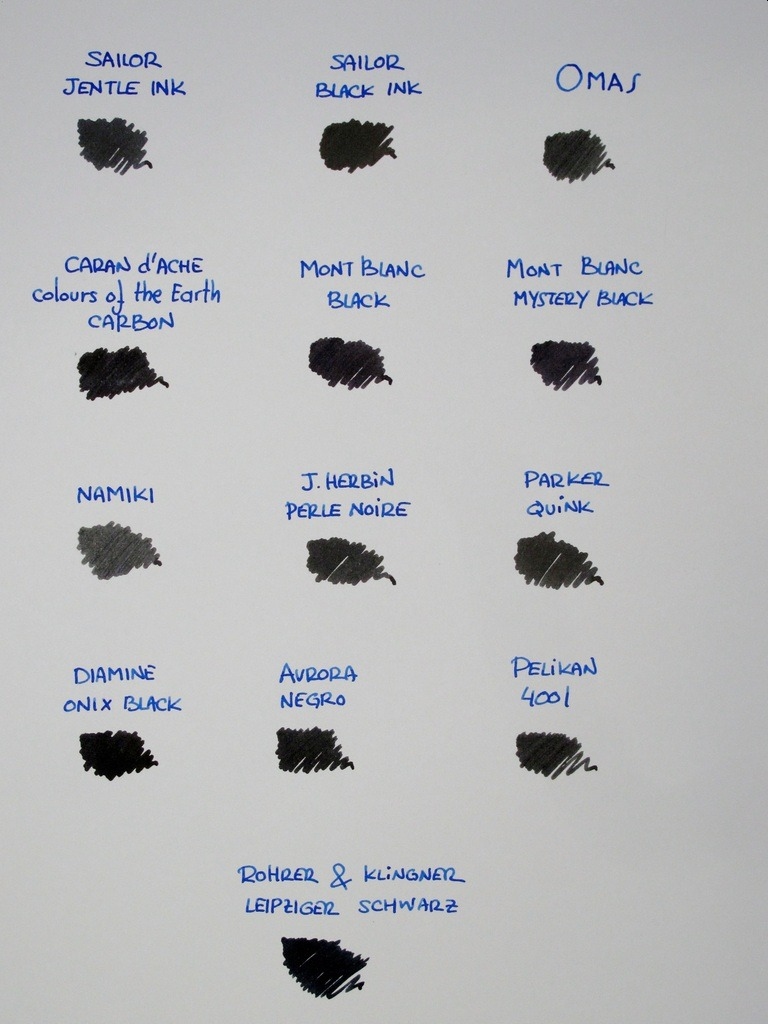 SAILOR
JENTLE INK
SAILOR
BLACK INK
OMAS
CARAN d'ACHE
colours of the Earth
CARBON
MONT BLANC
BLACK
MONT BLANC
MYSTERY BLACK
NAMIKI
J. HERBIN
PERLE NOIRE
PARKER
QUINK
DIAMINE
ONIX BLACK
AURORA
NEGRO
PELIKAN
4001
ROHRER & KLINGNER
LEIPZIGER SCHWARZ